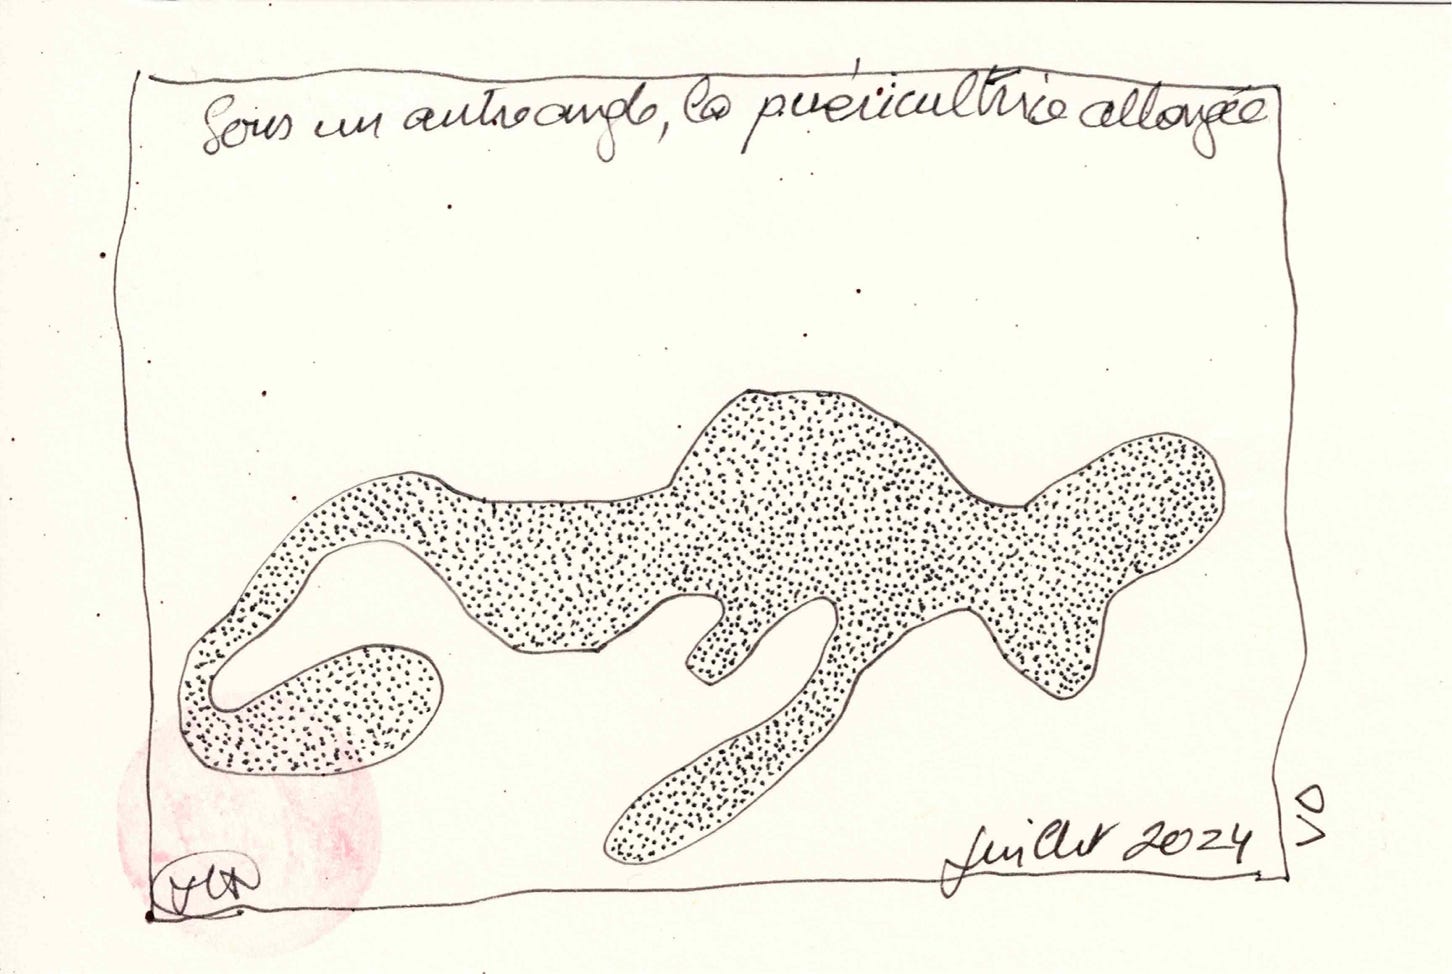 Sous un autre angle, la puéricultrice allongée
Juillet 2024
VO